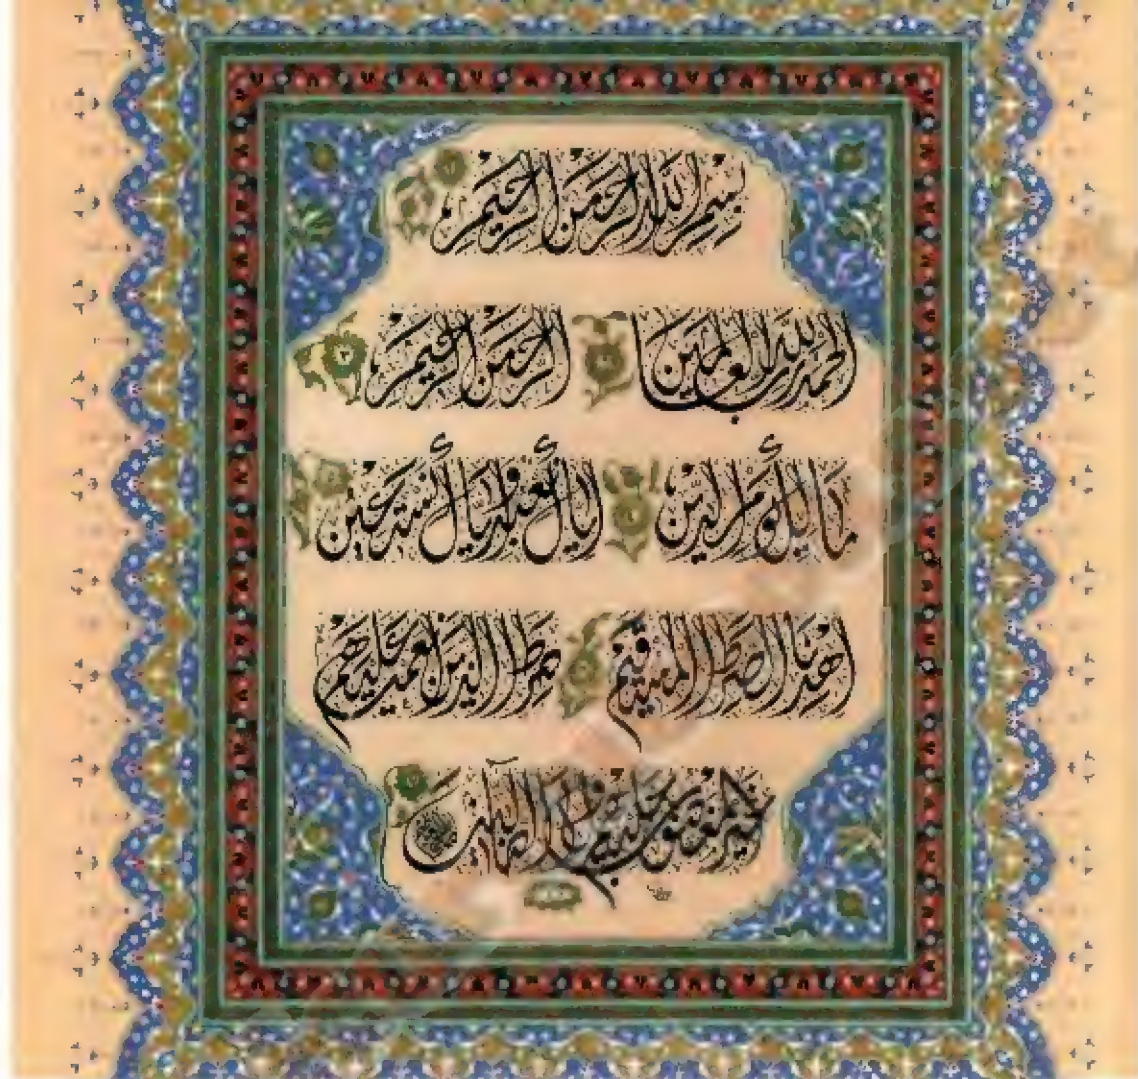 بِسْمِ اللَّهِ الرَّحْمَٰنِ الرَّحِيمِ
الْحَمْدُ لِلَّهِ رَبِّ الْعَالَمِينَ الرَّحْمَٰنِ الرَّحِيمِ
مَالِكِ يَوْمِ الدِّينِ إِيَّاكَ نَعْبُدُ وَإِيَّاكَ نَسْتَعِينُ
اهْدِنَا الصِّرَاطَ الْمُسْتَقِيمَ صِرَاطَ الَّذِينَ أَنْعَمْتَ عَلَيْهِمْ
غَيْرِ الْمَغْضُوبِ عَلَيْهِمْ وَلَا الضَّالِّينَ